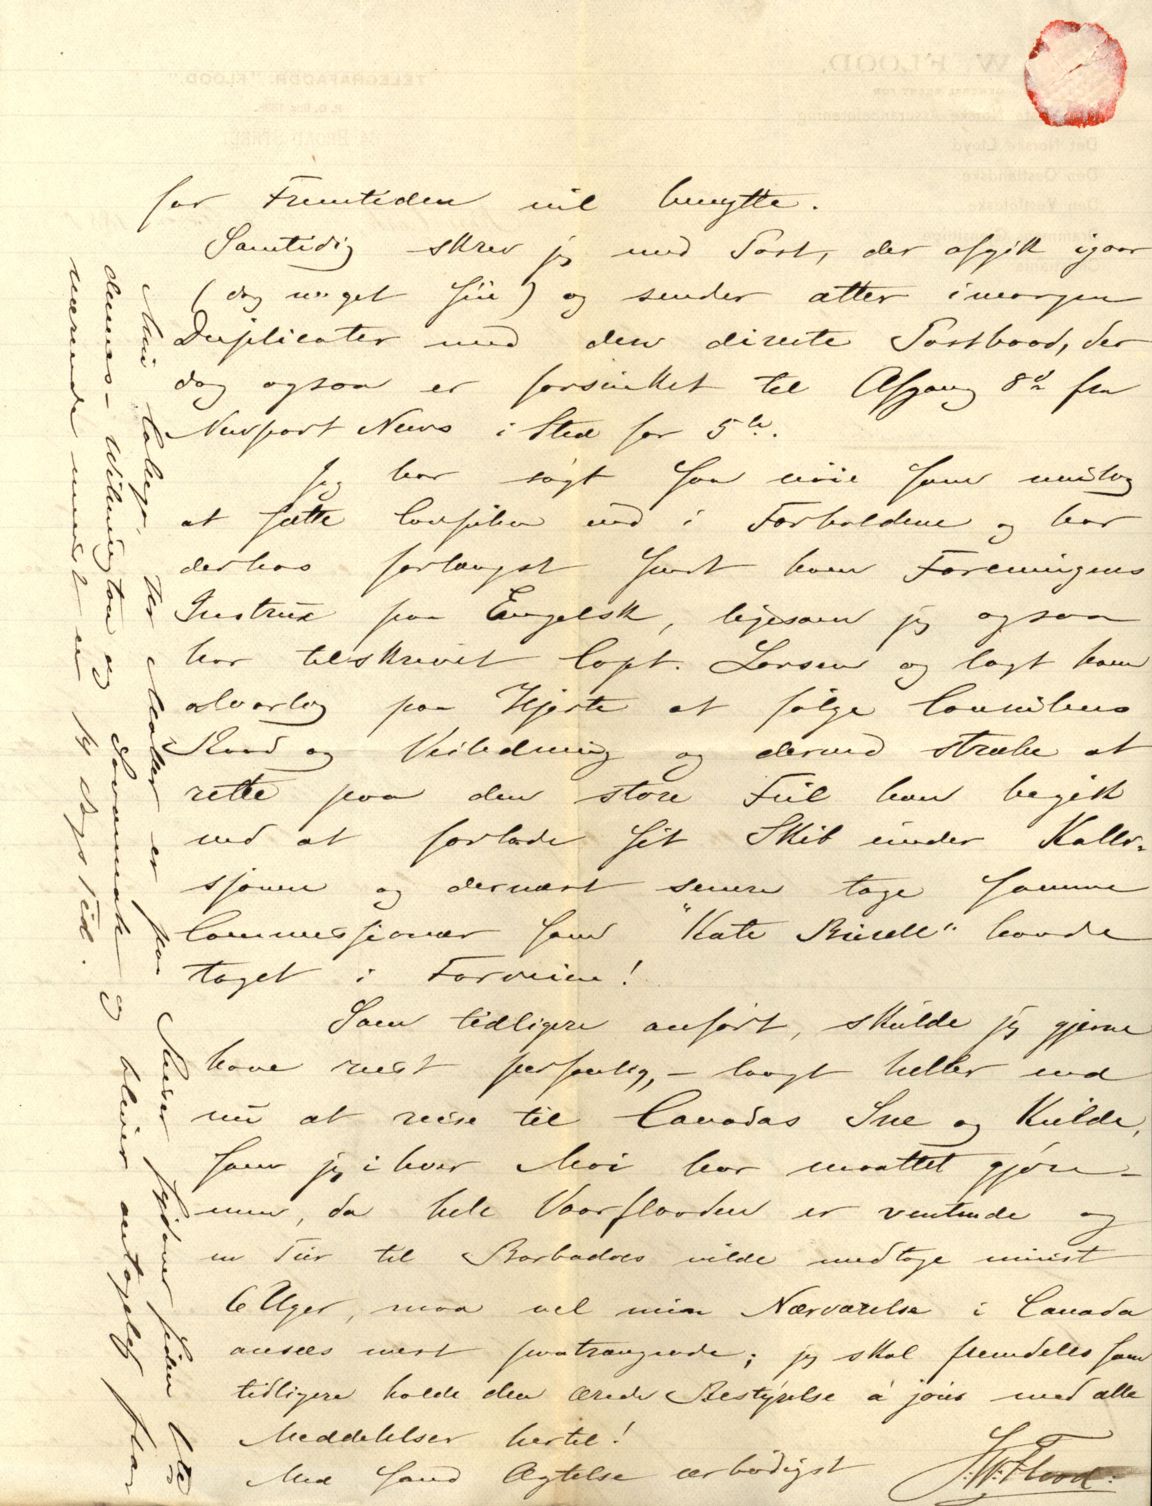 for Fremtiden vil benytte.
Samtidig skrev jeg med Post, der afgik igaar
(dog noget sen) og sender atter imorgen
Duplicater med den directe Postbaad, der
dog ogsaa er forsinket til Afgang 8de fra
Newport News i Sted for 5te.
Jeg har søgt saa nøie som muligt
at sætte Consulen ind i Forholdene og har
derhos forlængst sendt ham Foreningens
Instrux paa Engelsk, ligesom jeg ogsaa
har tilskrevet Capt. Larsen og lagt ham
alvorlig paa Hjerte at følge Consulens
Raad og Veiledning og dermed stræbe at
rette paa den store Feil han begik
ved at forlade sit Skib under Kalle-
sjonen og dernæst senere tage samme
Commissionær som "Kate Burell" havde
taget i Forveien!
Som tidligere anført, skulde jeg gjerne
have reist personlig, – langt heller end
nu at reise til Canadas Sne og Kulde,
som jeg i hver Mai har maattet gjøre –
men, da hele Vaarflaaden er ventende og
en Tur til Barbados vilde medtage mindst
6 Uger, maa vel min Nærværelse i Canada
ansees mest paatrængende; jeg skal fremdeles som
tidligere holde den ærede Bestyrelse á jour med alle
Meddelelser hertil!
Med sand Agtelse ærbødigst
J. W. Flood.
Min Collega, Hr Møller er paa Reiser sydover siden
dennes – Wilmington og Savannah og bliver antagelig
værende mindst en 14 Dags Tid.